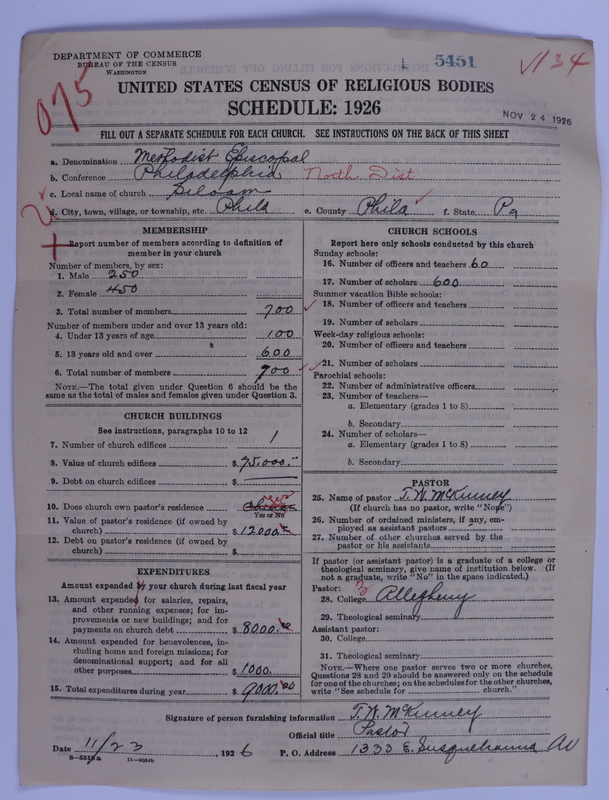 DEPARTMENT OF COMMERCE
BUREAU OF THE CENSUS
WASHINGTON
5451
134
075
UNITED STATES CENSUS OF RELIGIOUS BODIES
SCHEDULE: 1926
NOV 24 1926
FILL OUT A SEPARATE SCHEDULE FOR EACH CHURCH. SEE INSTRUCTIONS ON THE BACK OF THIS SHEET
a. Denomination Methodist Episcopal
b. Conference Philadelphia North Dist
c. Local name of church Siloam
d. City, town, village, or township, etc. Phila e. County Phila f. State Pa
MEMBERSHIP
Report number of members according to definition of member in your church
Number of members, by sex:
1. Male 250
2. Female 450
3. Total number of members 700
Number of members under and over 13 years old:
4. Under 13 years of age 100
5. 13 years old and over 600
6. Total number of members 700
NOTE.—The total given under Question 6 should be the
same as the total of males and females given under Question 3.
CHURCH BUILDINGS
See instructions, paragraphs 10 to 12
7. Number of church edifices 1
8. Value of church edifices $ 75,000.
9. Debt on church edifices $
10. Does church own pastor's residence yes
Yes or No
11. Value of pastor's residence (if owned by
church) $ 12000
12. Debt on pastor's residence (if owned by
church) $
EXPENDITURES
Amount expended by your church during last fiscal year
13. Amount expended for salaries, repairs,
and other running expenses; for im-
provements or new buildings; and for
payments on church debt $ 8000.00
14. Amount expended for benevolences, in-
cluding home and foreign missions; for
denominational support; and for all
other purposes $ 1000.
15. Total expenditures during year $ 9000.00
CHURCH SCHOOLS
Report here only schools conducted by this church
Sunday schools:
16. Number of officers and teachers 60
17. Number of scholars 600
Summer vacation Bible schools:
18. Number of officers and teachers
19. Number of scholars
Week-day religious schools:
20. Number of officers and teachers
21. Number of scholars
Parochial schools:
22. Number of administrative officers
23. Number of teachers—
a. Elementary (grades 1 to 8)
b. Secondary
24. Number of scholars—
a. Elementary (grades 1 to 8)
b. Secondary
PASTOR
25. Name of pastor T. W. McKinney
(If church has no pastor, write "None")
26. Number of ordained ministers, if any, em-
ployed as assistant pastors
27. Number of other churches served by the
pastor or his assistants
If pastor (or assistant pastor) is a graduate of a college or
theological seminary, give name of institution below. (If
not a graduate, write "No" in the space indicated.)
Pastor: 3
28. College Allegheny
29. Theological seminary
Assistant pastor:
30. College
31. Theological seminary
NOTE.—Where one pastor serves two or more churches,
Questions 28 and 29 should be answered only on the schedule
for one of the churches; on the schedules for the other churches,
write "See schedule for church."
Signature of person furnishing information T. W. McKinney
Official title Pastor
Date 11/23 1926 P. O. Address 1333 E. Susquehanna Av
8-5515a 11-9054b